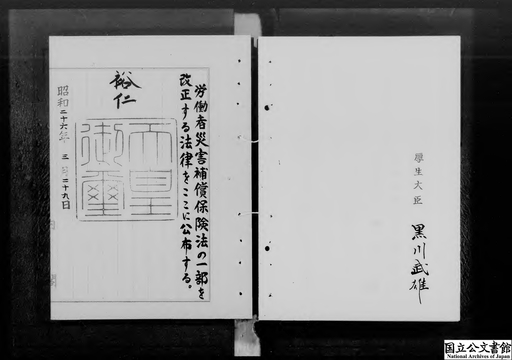 厚生大臣 黒川武雄
労働者災害補償保険法の一部を
改正する法律をここに公布する。
裕仁
天皇
御璽
昭和二十六年三月二十九日
内閣
国立公文書館
National Archives of Japan